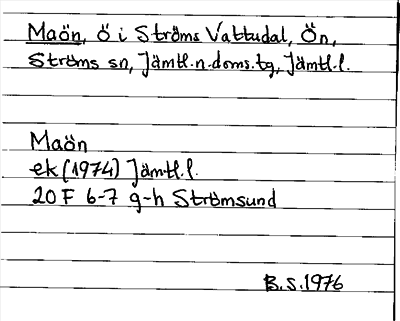 Maön, ö i Ströms Vattudal, Ön,
Ströms sn, Jämtl.n.doms.tg, Jämtl.l.
Maön
ek (1974) Jämtl.l.
20 F 6-7 g-h Strömsund
B.S.1976